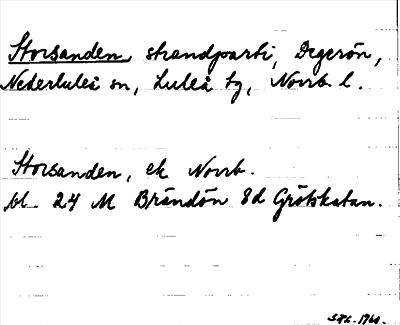 Storsanden, strandparti, Degerön,
Nederluleå sn, Luleå tg, Norrb. l.
Storsanden, ek Norrb.
bl. 24 M Brändön 8d Gråtskatan.
1960.